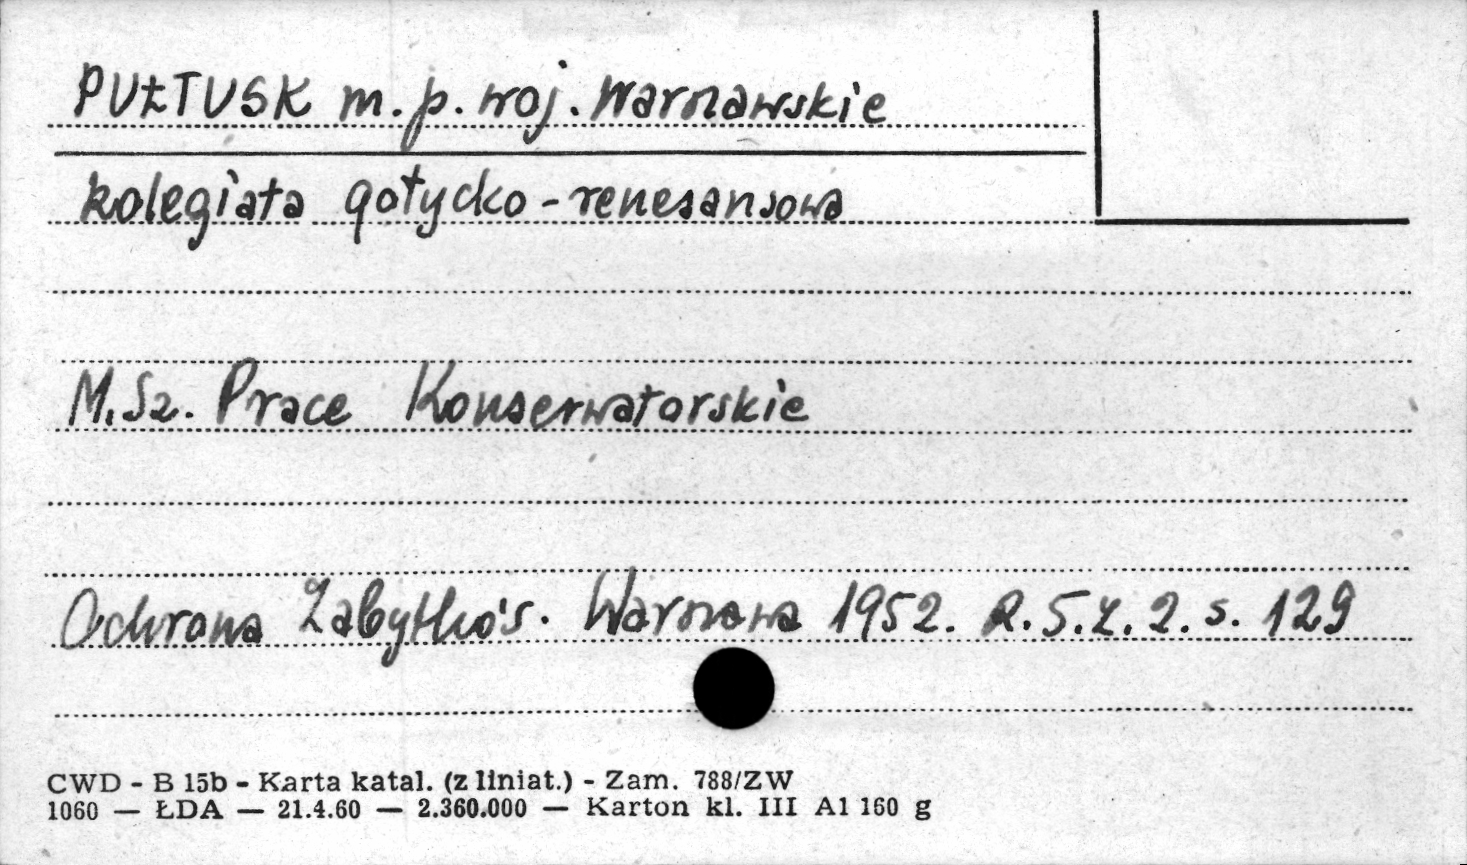 PUŁTUSK m.p. woj. Warszawskie
kolegiata gotycko-renesansowa
M.Sz. Prace Konserwatorskie
Ochrona Zabytków. Warszawa 1952. R.5.z.2. s. 129
CWD - B 15b - Karta katal. (z liniat.) - Zam. 788/ZW
1060 — ŁDA — 21.4.60 — 2.360.000 — Karton kl. III A1 160 g